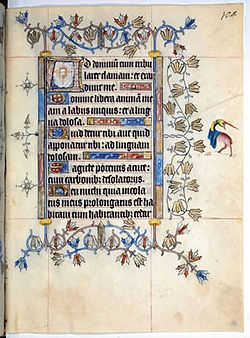 104
Ad dominum cum tribu
larer clamaui: et exau
diuit me.
Domine libera animam me
am a labiis iniquis: et a ling
ua dolosa.
Quid detur tibi aut quid
apponatur tibi: ad linguam
dolosam.
Sagitte potentis acute:
cum carbonibus desolatoriis.
Heu michi quia incola
tus meus prolongatus est ha
bitaui cum habitantibus cedar